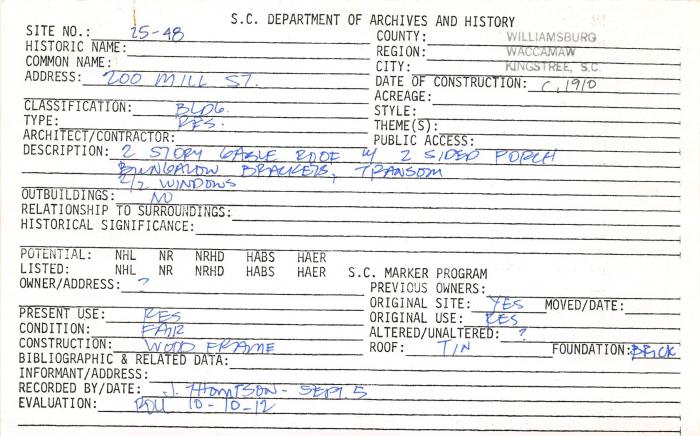 S.C. DEPARTMENT OF ARCHIVES AND HISTORY
SITE NO.: 25-48 COUNTY: WILLIAMSBURG
HISTORIC NAME: REGION: WACCAMAW
COMMON NAME: CITY: KINGSTREE, S.C.
ADDRESS: 200 MILL ST. DATE OF CONSTRUCTION: C. 1910
ACREAGE:
CLASSIFICATION: BLDG. STYLE:
TYPE: RES. THEME(S):
ARCHITECT/CONTRACTOR: PUBLIC ACCESS:
DESCRIPTION: 2 STORY GABLE ROOF W/ 2 SIDED PORCH
BUNGALOW BRACKETS, TRANSOM
2/2 WINDOWS
OUTBUILDINGS: NO
RELATIONSHIP TO SURROUNDINGS:
HISTORICAL SIGNIFICANCE:
POTENTIAL: NHL NR NRHD HABS HAER
LISTED: NHL NR NRHD HABS HAER S.C. MARKER PROGRAM
OWNER/ADDRESS: ? PREVIOUS OWNERS:
ORIGINAL SITE: YES MOVED/DATE:
PRESENT USE: RES ORIGINAL USE: RES
CONDITION: FAIR ALTERED/UNALTERED: ?
CONSTRUCTION: WOOD FRAME ROOF: TIN FOUNDATION: BRICK
BIBLIOGRAPHIC & RELATED DATA:
INFORMANT/ADDRESS:
RECORDED BY/DATE: J. THOMPSON - SEPT 5
EVALUATION: ROLL 10-10-12